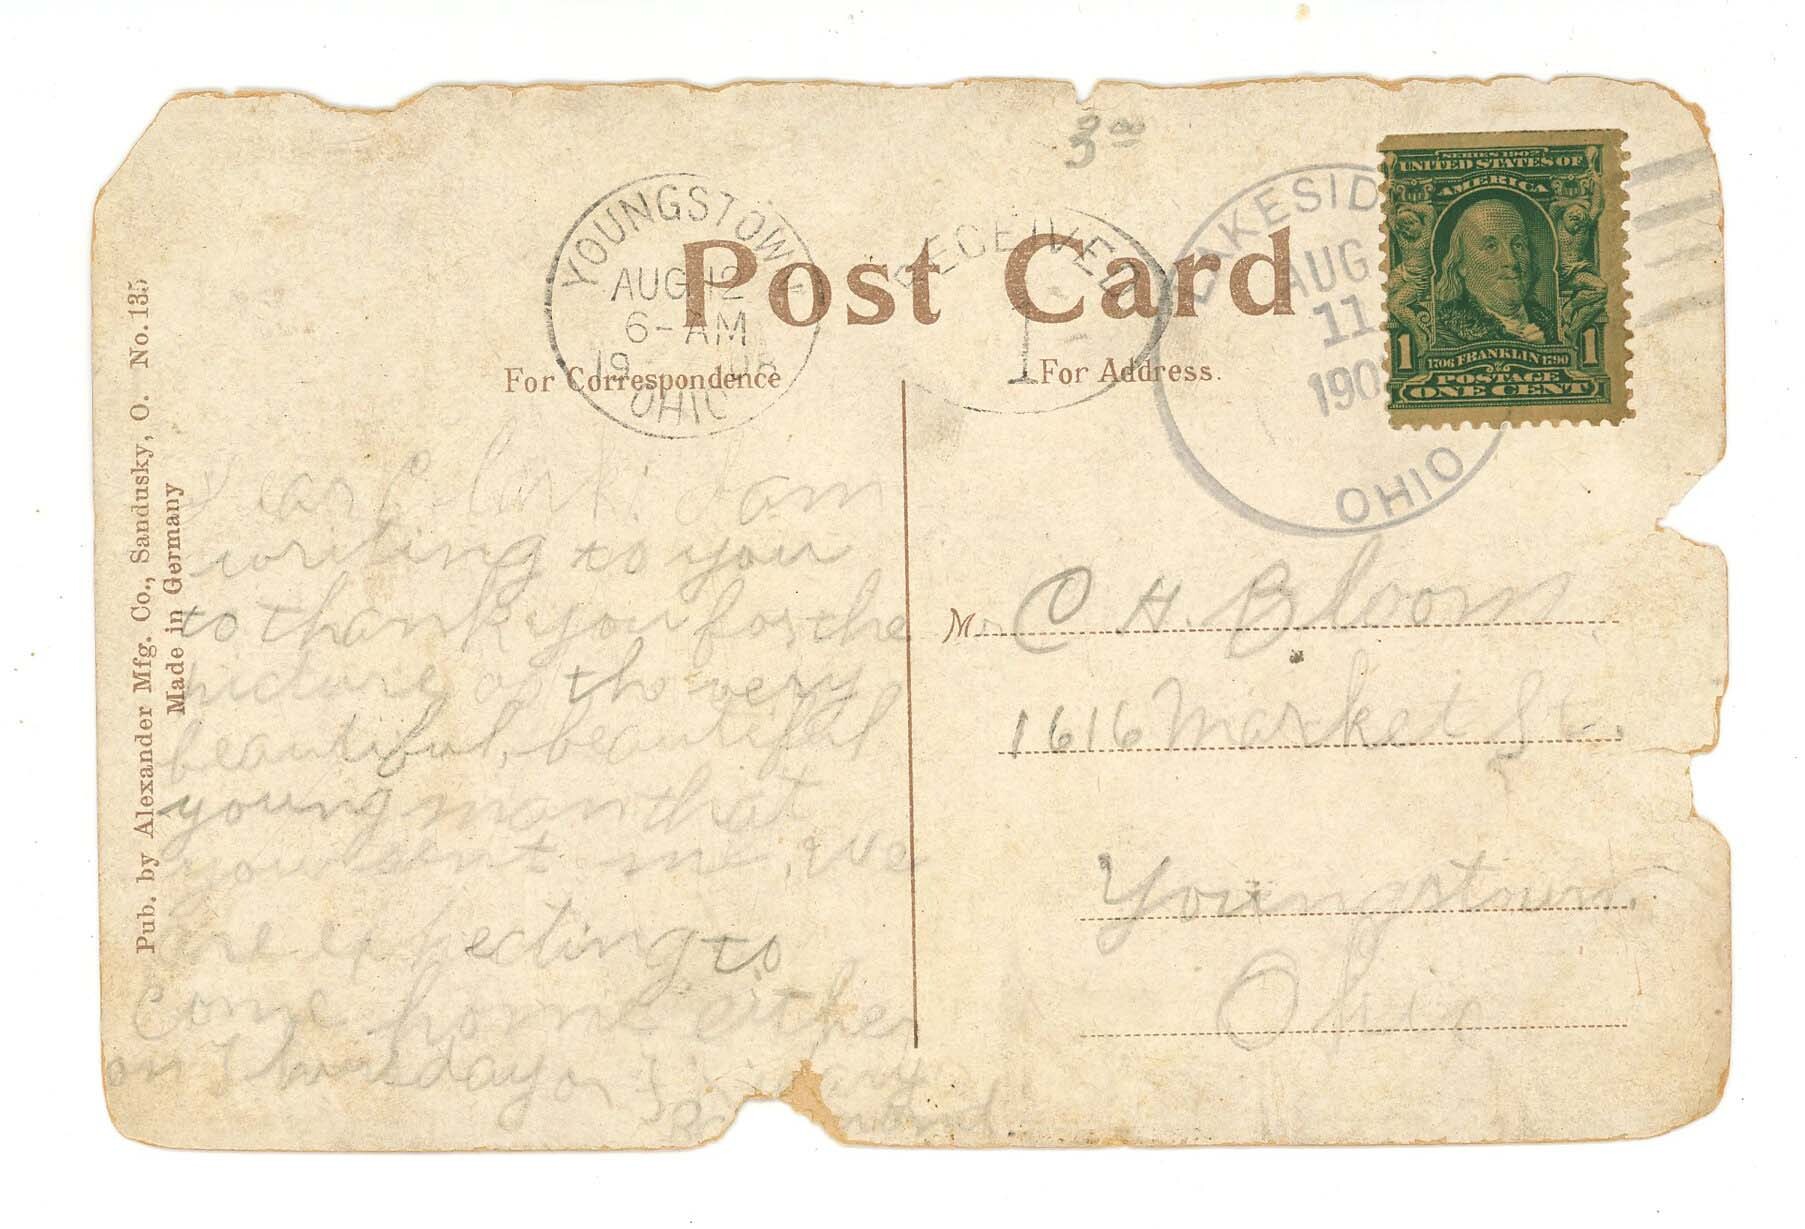 3 00
YOUNGSTOWN
AUG 12
6-AM
19 08
OHIO
RECEIVED
1
LAKESID
AUG
11
190
OHIO
SERIES 1902
UNITED STATES OF
AMERICA
1 1706 FRANKLIN 1790 1
POSTAGE
ONE CENT
Post Card
For Correspondence
For Address.
Pub. by Alexander Mfg. Co., Sandusky, O. No. 135
Made in Germany
Dear I am
writing to you
to thank you for the
picture of the very
beautiful, beautiful
young man that
you sent me. We
are expecting to
come home either
on Thursday or
Mr C H. Bloom
1616 Market St.
Youngstown
Ohio